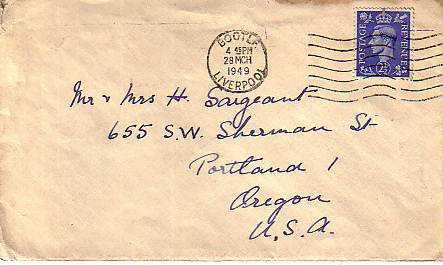 BOOTLE
4 45PM
28 MCH
1949
LIVERPOOL
POSTAGE
REVENUE
2½
Mr & Mrs H. Sargeant
655 S.W. Sherman St
Portland 1
Oregon
U.S.A.